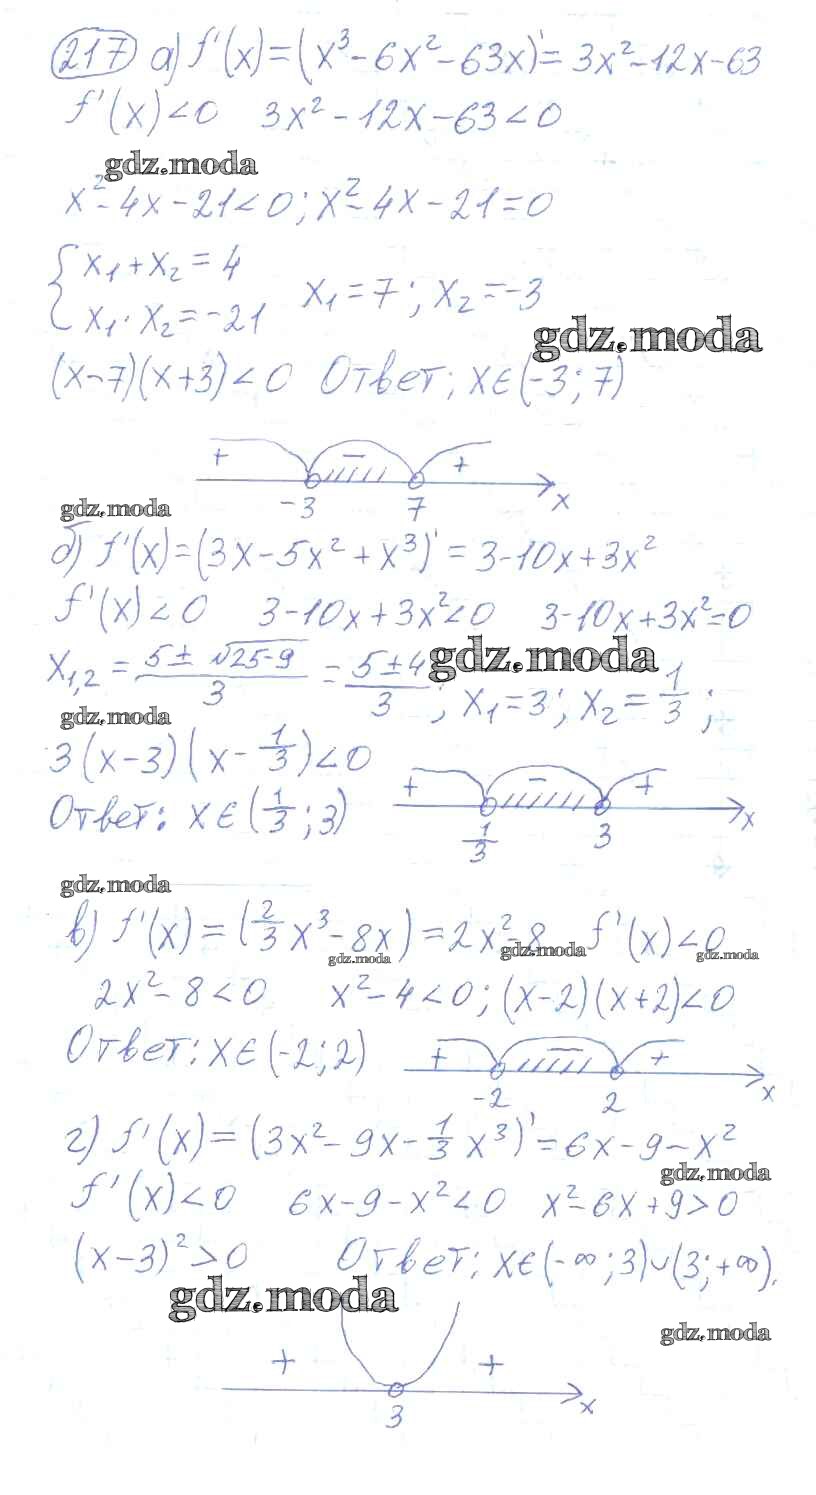 217 а) f'(x) = (x³ - 6x² - 63x)' = 3x² - 12x - 63
f'(x) < 0 3x² - 12x - 63 < 0
gdz.moda
x² - 4x - 21 < 0; x² - 4x - 21 = 0
{ x₁ + x₂ = 4
x₁ · x₂ = -21 x₁ = 7; x₂ = -3
gdz.moda
(x - 7)(x + 3) < 0 Ответ: x ∈ (-3; 7)
+ - +
-3 7 x
gdz.moda
б) f'(x) = (3x - 5x² + x³)' = 3 - 10x + 3x²
f'(x) < 0 3 - 10x + 3x² < 0 3 - 10x + 3x² = 0
x₁,₂ = (5 ± √25-9)/3 = (5 ± 4)/3; x₁ = 3; x₂ = 1/3;
gdz.moda
gdz.moda
3(x - 3)(x - 1/3) < 0
+ - +
Ответ: x ∈ (1/3; 3)
1/3 3 x
gdz.moda
в) f'(x) = (2/3 x³ - 8x) = 2x² - 8 f'(x) < 0
gdz.moda gdz.moda gdz.moda
2x² - 8 < 0 x² - 4 < 0; (x - 2)(x + 2) < 0
Ответ: x ∈ (-2; 2)
+ - +
-2 2 x
г) f'(x) = (3x² - 9x - 1/3 x³)' = 6x - 9 - x²
gdz.moda
f'(x) < 0 6x - 9 - x² < 0 x² - 6x + 9 > 0
(x - 3)² > 0 Ответ: x ∈ (-∞; 3) ∪ (3; +∞).
gdz.moda
gdz.moda
+ +
3 x